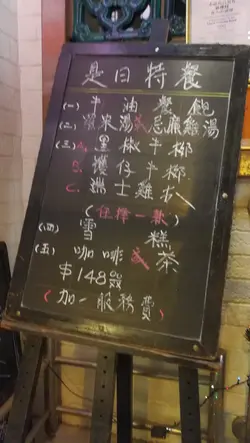 是日特餐
(一) 牛油覺飽
(二) 粟米湯或忌廉雞湯
(三) A. 黑椒牛柳
B. 獲仔牛柳
C. 瑞士雞扒
(任擇一款)
(四) 雪糕
(五) 咖啡或茶
$148
(加一服務費)